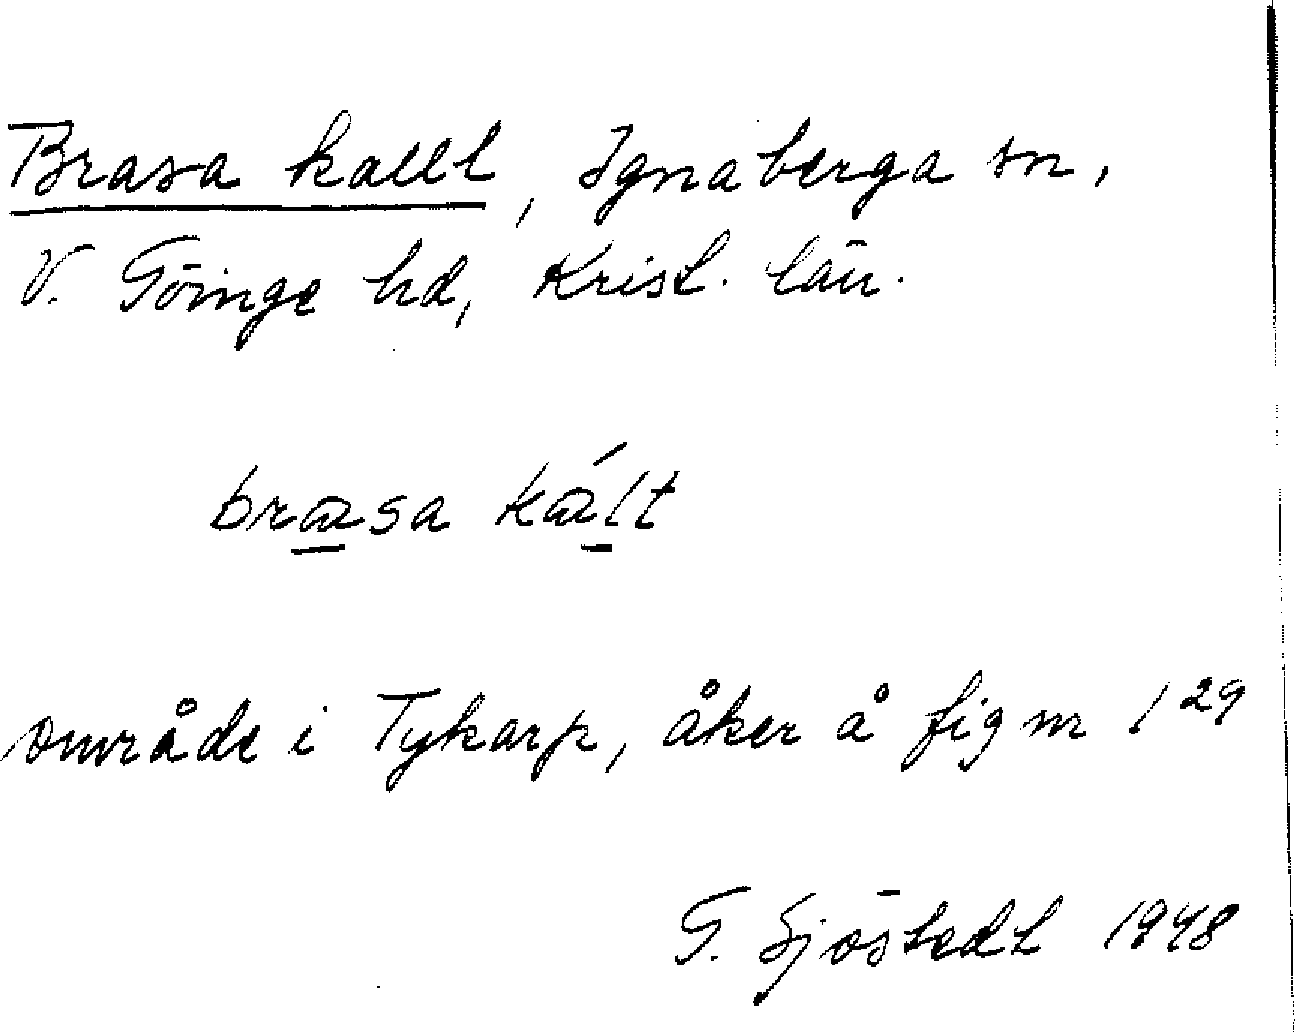 Brasa kallt, Ignaberga sn,
V. Göinge hd, Krist. län.
brasa kált
område i Tykarp, åker å fig nr 1 29
G. Sjöstedt 1948